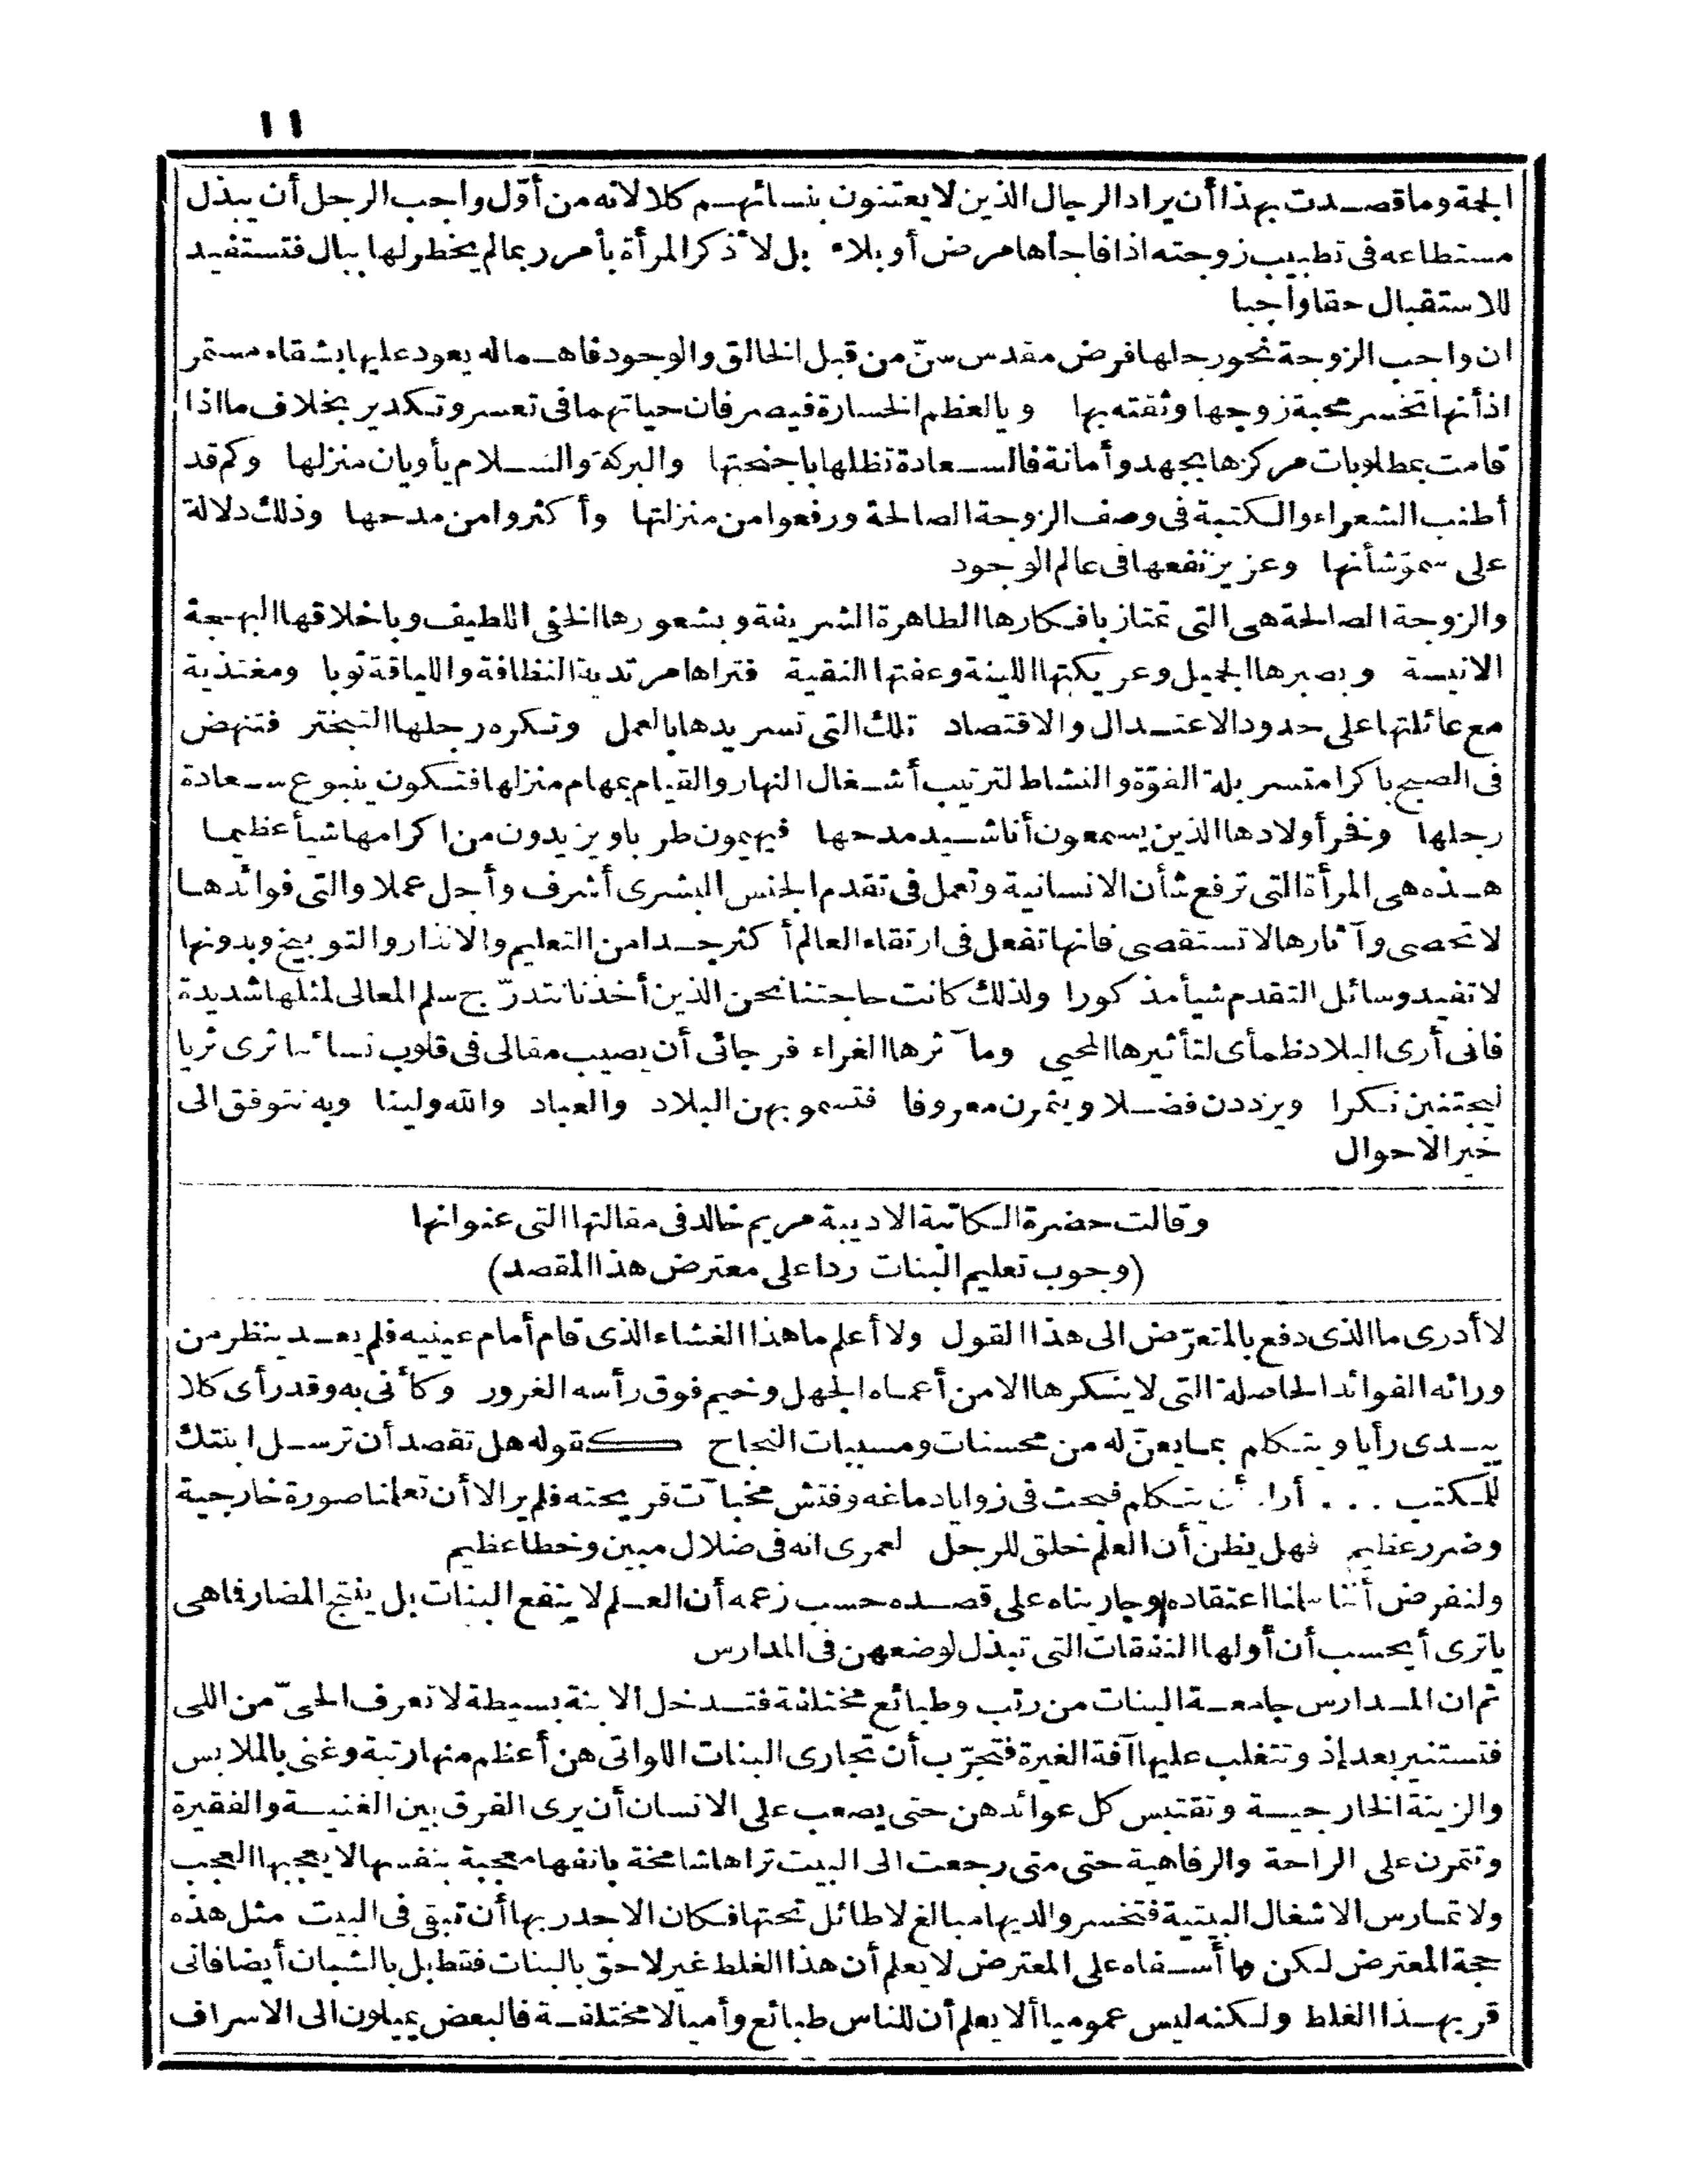 ١١
الجمة وما قصدت بهذا أن يراد الرجال الذين لا يعتنون بنسائهم كلا لانه من أوّل واجب الرجل أن يبذل
مستطاعه فى تطبيب زوجته اذا فاجأها مرض أو بلاء بل لاذكر المرأة بأمر ربما لم يخطر لها ببال فتستفيد
للاستقبال حقا واجبا
ان واجب الزوجة نحو رجلها فرض مقدس سنّ من قبل الخالق والوجود فاهماله يعود عليها بشقاء مستمر
اذ أنها تخسر محبة زوجها وثقته بها ويالعظم الخسارة فيصرفان حياتهما فى تعسر وتكدير بخلاف ما اذا
قامت بمطلوبات مركزها بجهد وأمانة فالسعادة تظلها باجنحتها والبركة والسلام يأويان منزلها وكم قد
أطنب الشعراء والكتبة فى وصف الزوجة الصالحة ورفعوا من منزلتها وأكثروا من مدحها وذلك دلالة
على سموّ شأنها وعزيز نفعها فى عالم الوجود
والزوجة الصالحة هى التى تمتاز بافكارها الطاهرة الشريفة وبشعورها الخفى اللطيف وباخلاقها البهجة
الانيسة وبصبرها الجميل وعريكتها اللينة وعفتها النقية فتراها مرتدية النظافة واللياقة ثوبا ومغتذية
مع عائلتها على حدود الاعتدال والاقتصاد تلك التى تسر يدها بالعمل وتكره رجلها التبختر فتنهض
فى الصبح باكرا متسربلة القوّة والنشاط لترتيب أشغال النهار والقيام بمهام منزلها فتكون ينبوع سعادة
رجلها وفخر أولادها الذين يسمعون أناشيد مدحها فيهيمون طربا ويزيدون من اكرامها شيأ عظيما
هذه هى المرأة التى ترفع شأن الانسانية وتعمل فى تقدم الجنس البشرى أشرف وأجل عملا والتى فوائدها
لا تحصى وآثارها لا تستقصى فانها تفعل فى ارتقاء العالم أكثر جدا من التعليم والانذار والتوبيخ وبدونها
لا تفيد وسائل التقدم شيأ مذكورا ولذلك كانت حاجتنا نحن الذين أخذنا نتدرّج سلم المعالى لمثلها شديدة
فانى أرى البلاد ظمأى لتأثيرها المحيى ومآثرها الغراء فرجائى أن يصيب مقالى فى قلوب نسائنا ثرى ثريا
ليجتنين فكرا ويزددن فضلا ويثمرن معروفا فتسمو بهن البلاد والعباد والله ولينا وبه نتوفق الى
خير الاحوال
وقالت حضرة الكاتبة الاديبة مريم خالد فى مقالتها التى عنوانها
(وجوب تعليم البنات ردا على معترض هذا المقصد)
لا أدرى ما الذى دفع بالمتعرّض الى هذا القول ولا أعلم ما هذا الغشاء الذى قام أمام عينيه فلم يعد ينظر من
ورائه الفوائد الحاصلة التى لا ينكرها الا من أعماه الجهل وخيم فوق رأسه الغرور وكأنى به وقد رأى كلا
يبدى رأيا ويتكلم بما يعنّ له من محسنات ومسببات النجاح كقوله هل تقصد أن ترسل ابنتك
للمكتب . . . أراد أن يتكلم فبحث فى زوايا دماغه وفتش مخبآت قريحته فلم ير الا أن تعلمنا صورة خارجية
وضرر عظيم فهل يظن أن العلم خلق للرجل لعمرى انه فى ضلال مبين وخطا عظيم
ولنفرض أننا سلمنا اعتقاده وجاريناه على قصده حسب زعمه أن العلم لا ينفع البنات بل ينتج المضار فما هى
ياترى أيحسب أن أولها النفقات التى تبذل لوضعهن فى المدارس
ثم ان المدارس جامعة البنات من رتب وطبائع مختلفة فتدخل الابنة بسيطة لا تعرف الحىّ من اللى
فتستنير بعد إذ وتتغلب عليها آفة الغيرة فتجرّب أن تجارى البنات اللواتى هن أعظم منها رتبة وغنى بالملابس
والزينة الخارجية وتقتبس كل عوائدهن حتى يصعب على الانسان أن يرى الفرق بين الغنية والفقيرة
وتتمرن على الراحة والرفاهية حتى متى رجعت الى البيت تراها شامخة بانفها معجبة بنفسها لا يعجبها العجب
ولا تمارس الاشغال البيتية فتخسر والديها مبالغ لا طائل تحتها فكان الاجدر بها أن تبقى فى البيت مثل هذه
حجة المعترض لكن وا أسفاه على المعترض لا يعلم أن هذا الغلط غير لاحق بالبنات فقط بل بالشبان أيضا فانى
قر بهذا الغلط ولكنه ليس عموميا ألا يعلم أن للناس طبائع وأميالا مختلفة فالبعض يميلون الى الاسراف